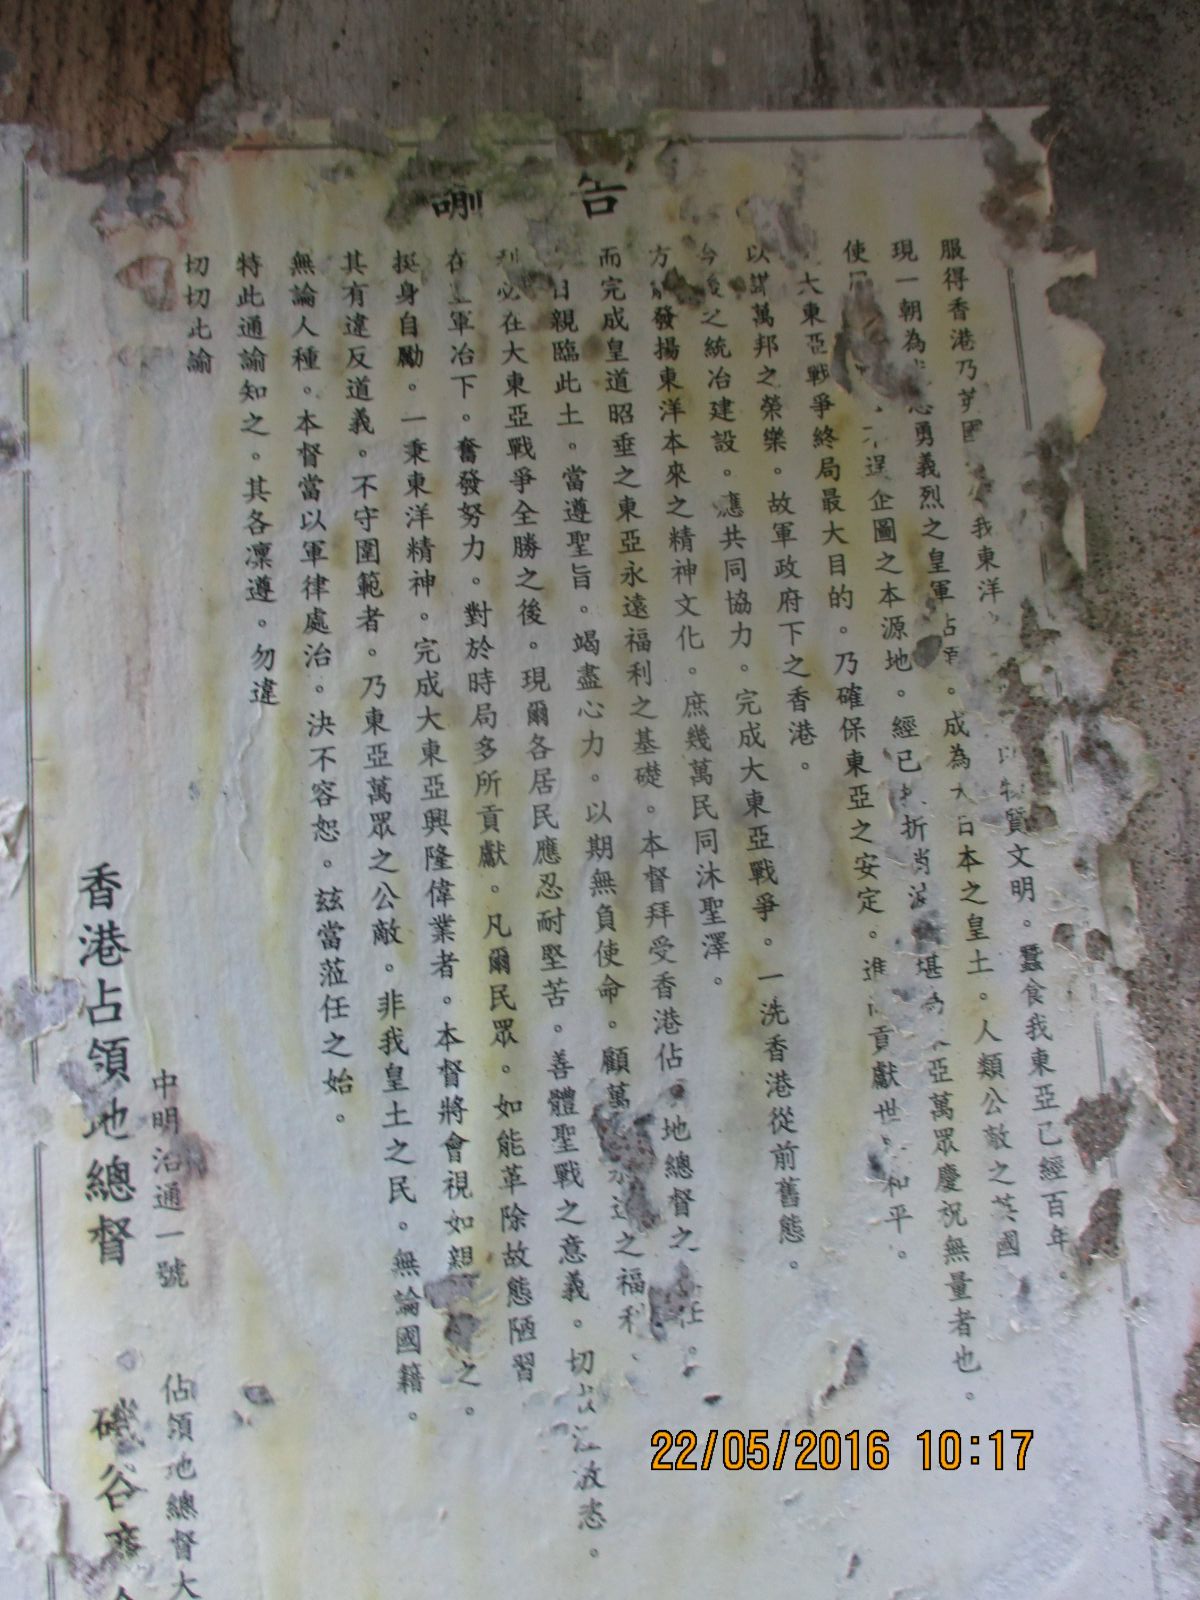 告 諭
我東洋 物質文明。蠶食我東亞已經百年。
服得香港乃英國 成為大日本之皇土。人類公敵之英國
現一朝為 勇義烈之皇軍占 經已 折消 堪為 亞萬眾慶祝無量者也。
使 不逞企圖之本源地。 進 貢獻世 和平。
大東亞戰爭終局最大目的。乃確保東亞之安定。
以 萬邦之榮樂。故軍政府下之香港。
今後之統治建設。應共同協力。完成大東亞戰爭。一洗香港從前舊態。
方 發揚東洋本來之精神文化。庶幾萬民同沐聖澤。
而完成皇道昭垂之東亞永遠福利之基礎。本督拜受香港佔 地總督之 任。
日親臨此土。當遵聖旨。竭盡心力。以期無負使命。顧萬 之福利
必在大東亞戰爭全勝之後。現爾各居民應忍耐堅苦。善體聖戰之意義。切 放恣。
在 軍冶下。奮發努力。對於時局多所貢獻。凡爾民眾。如能革除故態陋習
挺身自勵。一秉東洋精神。完成大東亞興隆偉業者。本督將會視如親 之。
其有違反道義。不守圍範者。乃東亞萬眾之公敵。非我皇土之民。無論國籍。
無論人種。本督當以軍律處治。決不容恕。玆當蒞任之始。
特此通諭知之。其各凜遵。勿違
切切此諭
中明治通一號 佔領地總督大
香港占領地總督 磯谷
22/05/2016 10:17